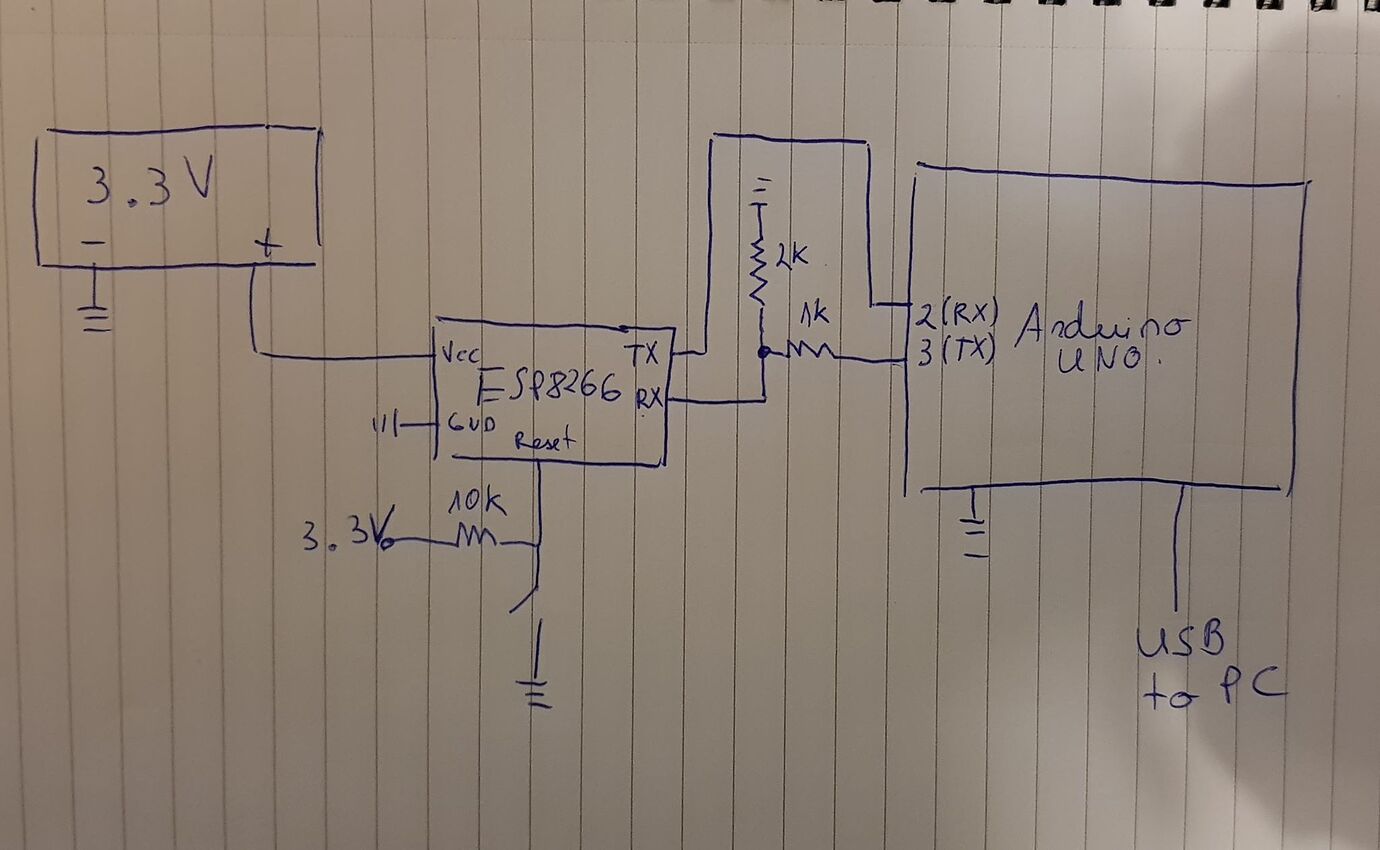 3.3V
- +
2K
1k
2(RX)
3(TX)
Arduino
UNO.
Vcc
TX
ESP8266
RX
GND
Reset
10k
3.3V
USB
to PC